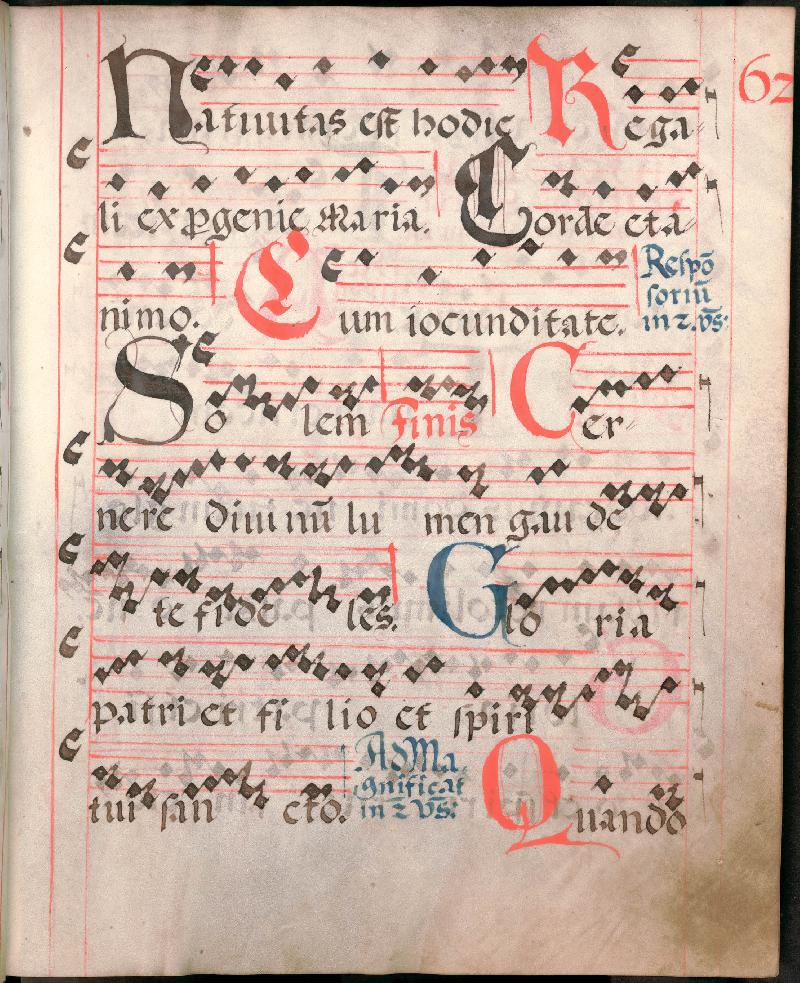 62
Natiuitas est hodie Rega-
li ex ꝓgenie Maria. Corde eta-
nimo. Cum iocunditate. Respō
soriū
in 2. vs̄:
So lem Finis Cer-
nere diuinū lu men gau de
te fide les. Glo ria
patri et fi lio et spiri
tui san cto. Ad Ma-
gnificat
in 2 vs: Quando